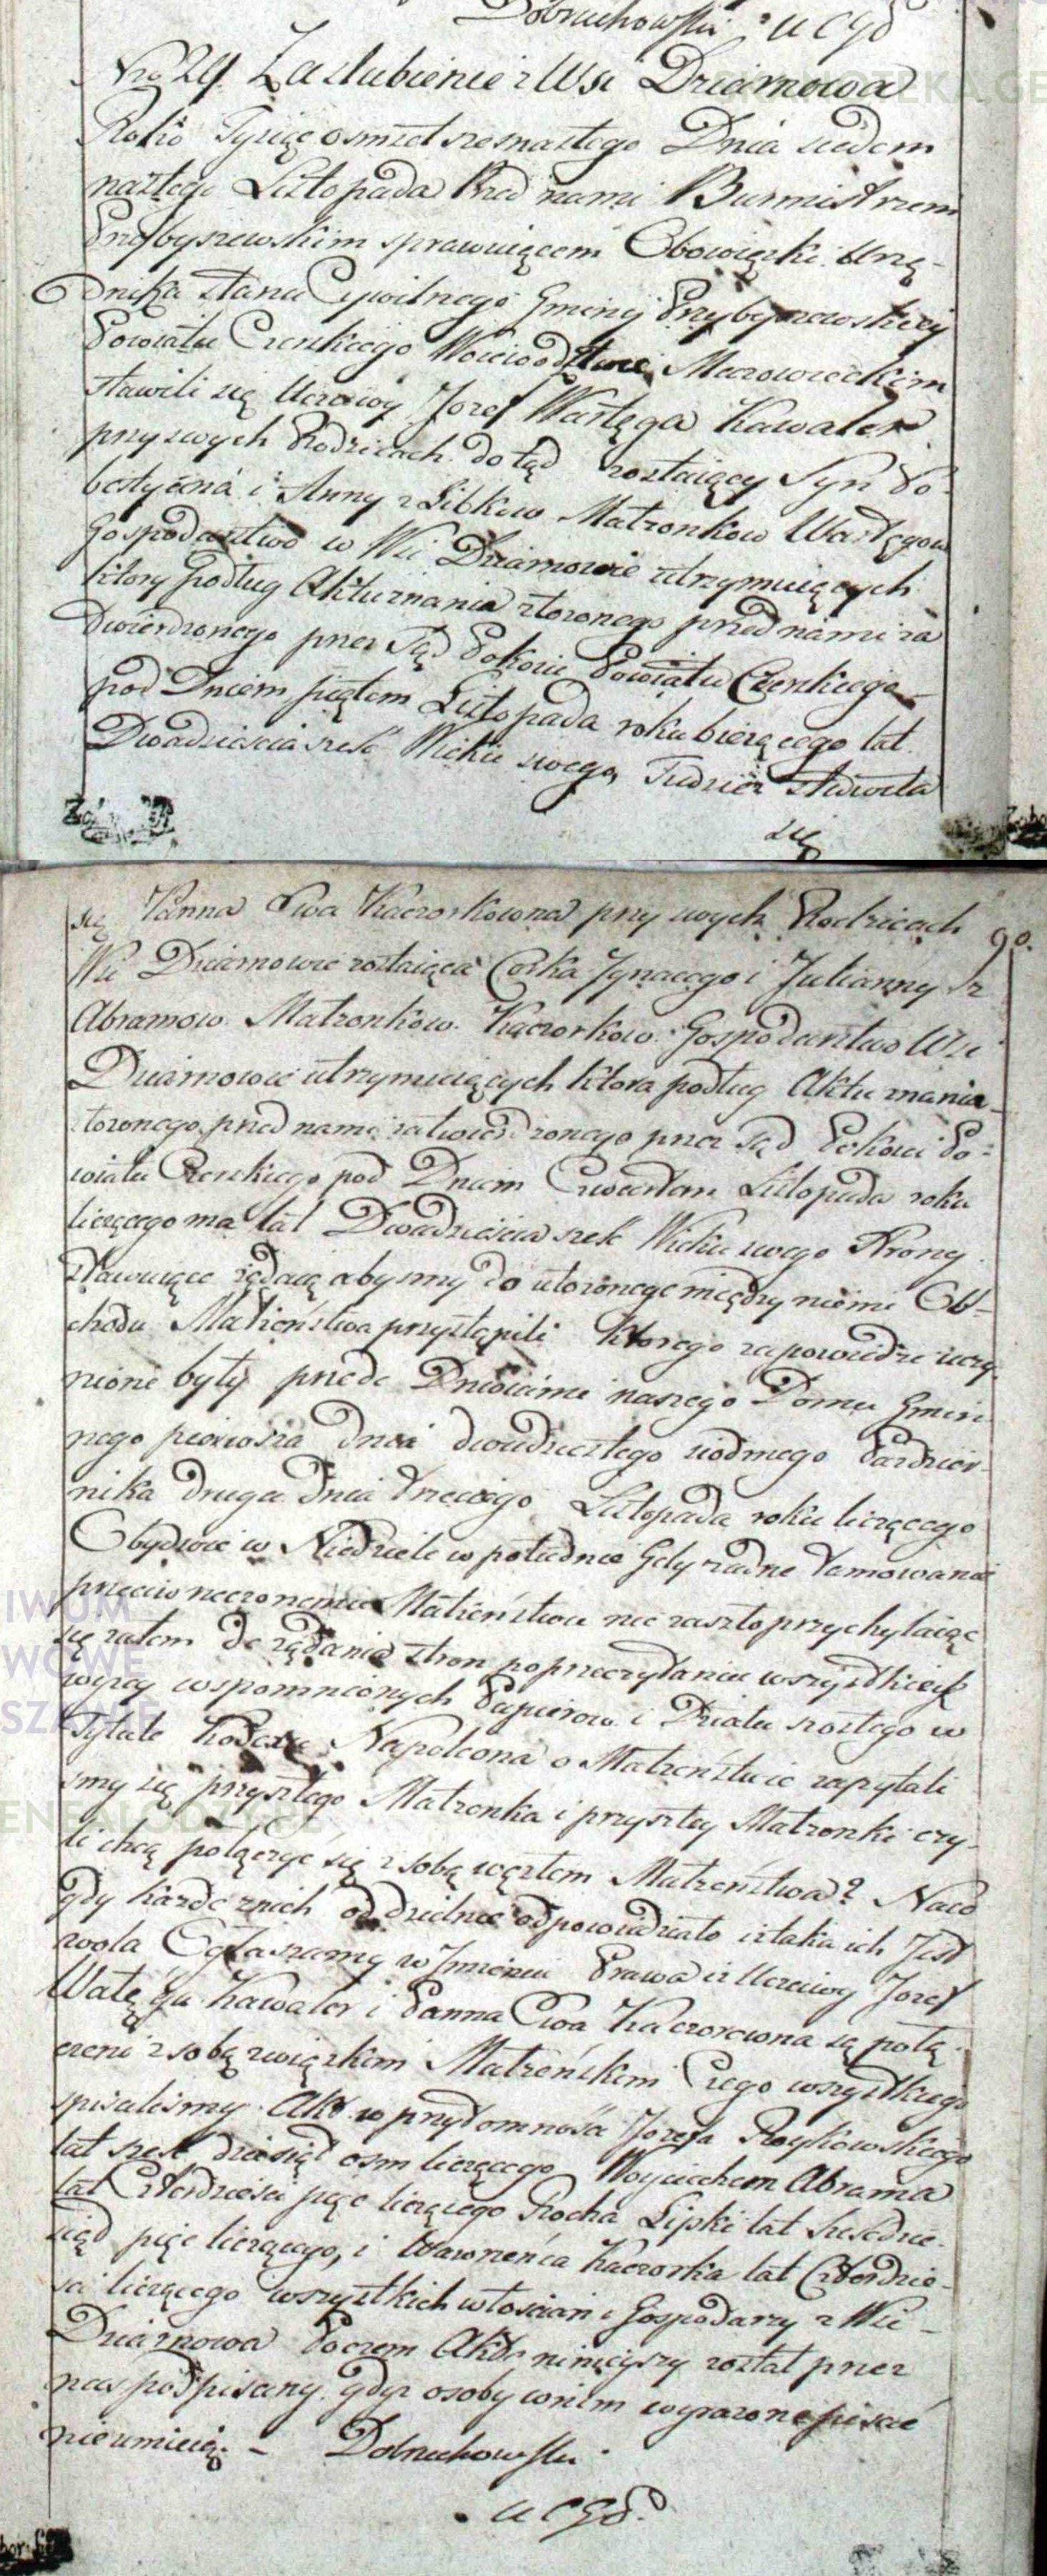 Dobruchowski U C G P
Nro 24. Zaslubienie z Wsi Dziarnowa
Roku Tysiąc osmset szesnastego Dnia siedem
nastego Listopada Przed nami Burmistrzem
Przybyszewskim sprawuiącem Obowiązki Urzę-
dnika Stanu Cywilnego Gminy Przybyszewskiey
Powiatu Czerskiego Woiewodztwie Mazowieckim
stawili się Uczciwy Jozef Wastęga Kawaler
przy swych Rodzicach dotąd zostaiący Syn Se-
bestyana i Anny z Libkow Małzonkow Wastęgow
Gospodarstwo w Wsi Dziarnowie utrzymuiących
ktory podług Aktu znania złozonego przed nami za
twierdzonego przez Sąd Pokoiu Powiatu Czerskiego
pod Dniem piątem Listopada roku bierącego lat
Dwadziescia szesc Wieku swego, Tudziez stawiła
się
się Panna Ewa Kaczorkowna przy swych Rodzicach 90.
Wsi Dziarnowie zostaiąca Corka Jgnacego i Julianny z
Abramow Małzonkow Kaczorkow Gospodarstwo Wsi
Dziarnowie utrzymuiących ktora podług Aktu znania
złozonego przed nami zatwierdzonego przez Sąd Pokoiu Po-
wiatu Czerskiego pod Dniem Czwartem Listopada roku
bierącego ma lat Dwadziescia szesc Wieku swego Strony
stawaiące ządaią abysmy do ułozonego między niemi Ob-
chodu Małzenstwa przystąpili ktorego zapowiedzi uczy
nione były przede Drzwiami naszego Domu Gmin
nego pierwsza dnia dwudziestego siodmego Pazdzier-
nika druga dnia trzeciego Listopada roku bierącego
Obydwie w Niedziele w południe Gdy zadne tamowanie
przeciw rzeczonemu Małzenstwu nie zaszło przychylaiąc
się zatem do ządania stron po przeczytaniu wszystkich
wyzey wspomnionych Papierow i Działu szostego w
Tytule Kodexu Napoleona o Małzenstwie zapytali
smy się przyszłego Małzonka i przyszłey Małzonki czy
li chcą połączyc się z sobą węzłem Małzenstwa? Na co
gdy kazde z nich oddzielnie odpowiedziało iz taka ich Jest
wola Ogłaszamy w Jmieniu Prawa iz Uczciwy Jozef
Watęga Kawaler i Panna Ewa Kaczorowna są połą
czeni z sobą związkiem Małzenskim Czego wszystkiego
spisalismy Akt w przytomnosci Jozefa Roykowskiego
lat szesc dziesiąt osm liczącego Woyciechem Abrama
lat Czterdziesci pięc liczącego Rocha Lipki lat szescdzie-
siąt pięc liczącego, i Wawrzenca Kaczorka lat Czterdzie-
sci liczącego wszystkich włoscian i Gospodarzy z Wsi
Dziarnowa Poczem Akt ninieyszy został przez
nas podpisany gdyz osoby w niem wyrazone pisac
nieumieią. - Dobruchowski
U C G P.